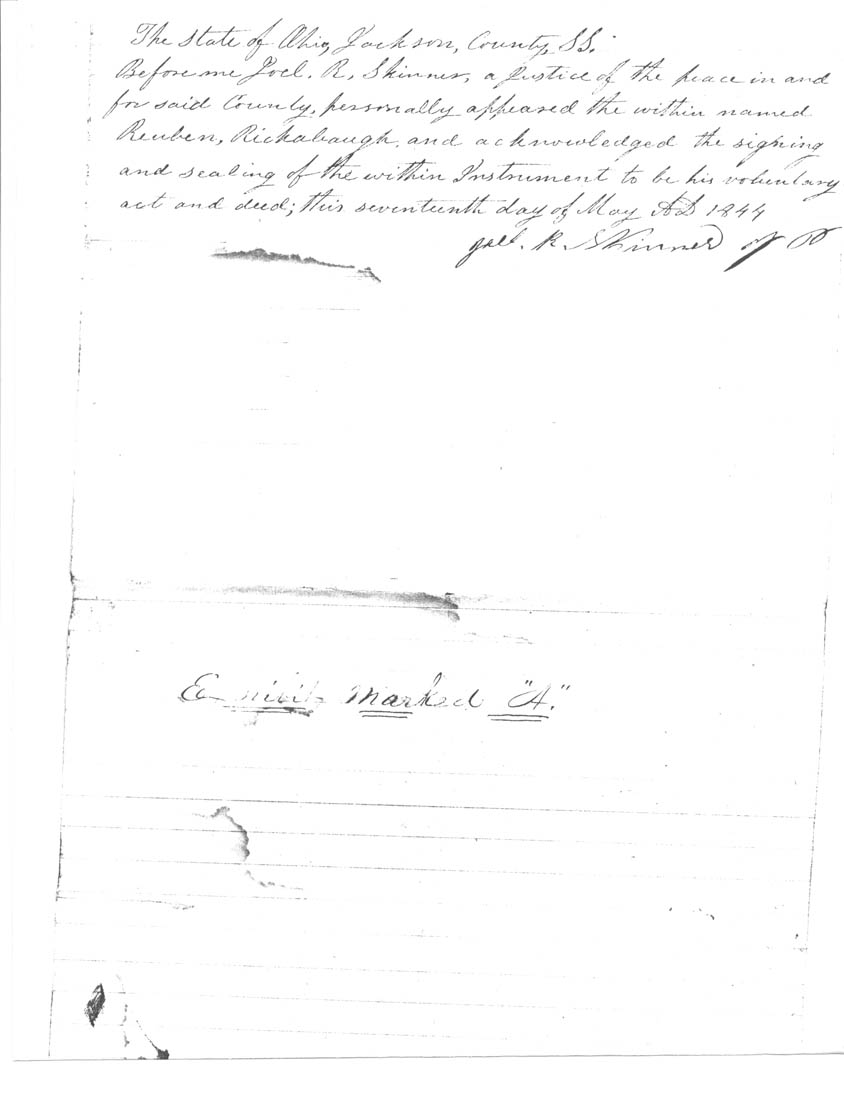 The State of Ohio, Jackson, County, SS.
Before me Joel. R. Skinner, a Justice of the peace in and
for said County, personally appeared the within named
Reuben, Rickabaugh, and acknowledged the signing
and sealing of the within Instrument to be his voluntary
act and deed; this seventeenth day of May AD 1844
Joel. R. Skinner J P
marked "A."